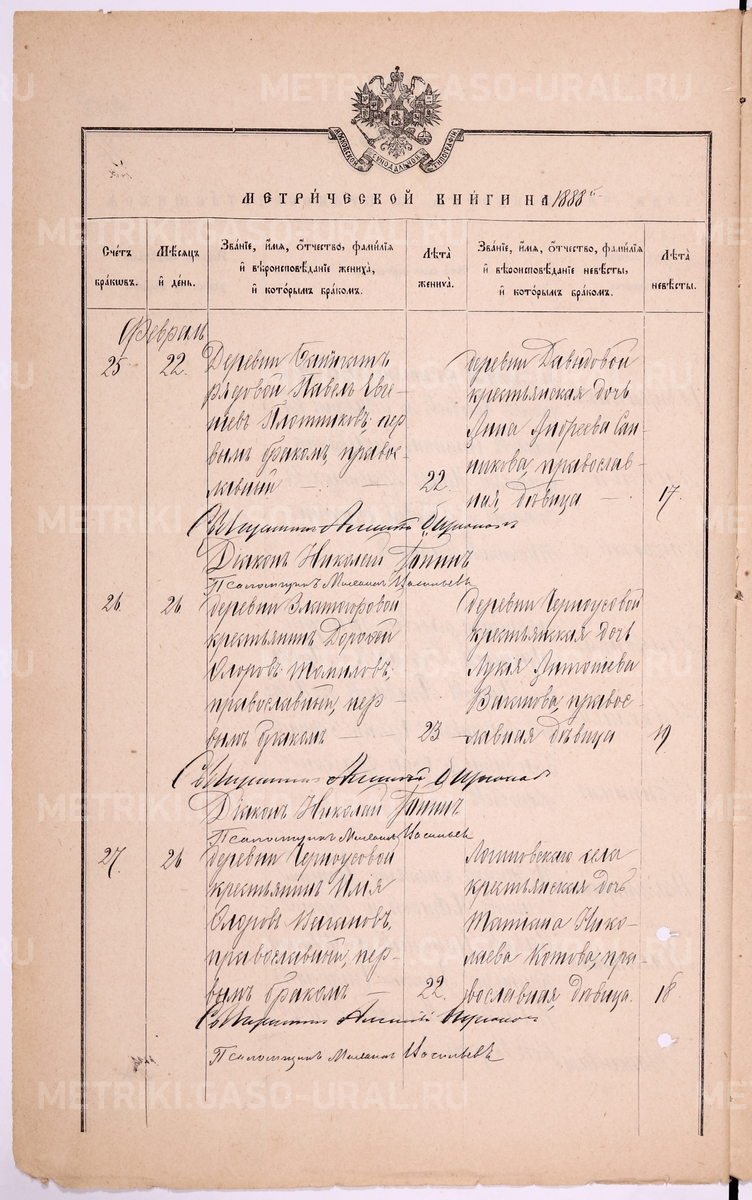 МОСКОВСКОЙ СѴНОДАЛЬНОЙ ТИПОГРАФІИ
МЕТРИ́ЧЕСКОЙ КНИ́ГИ НА 1888 г.
Сче́тъ бра́кωвъ.
Мѣ́сяцъ и҆ де́нь.
Зва́нїе, и҆́мя, ѻ҆́тчество, фами́лїя и҆ вѣроисповѣ́данїе жениха̀, и҆ кото́рымъ бра́комъ.
Лѣ̀та жениха̀.
Зва́нїе, и҆́мя, ѻ҆́тчество, фами́лїя и҆ вѣроисповѣ́данїе невѣ́сты, и҆ кото́рымъ бра́комъ.
Лѣ̀та невѣ́сты.
Февраль
25
22.
Деревни
рядовой Павелъ Евге-
ніевъ Плотниковъ, пер
вымъ бракомъ, правос-
лавный
22.
деревни Давыдовой
крестьянская дочь
Анна Андреева Сан-
никова, православ-
ная, дѣвица
17.
Священникъ
Діаконъ Николай Папинъ
Псаломщикъ Михаилъ Васильевъ
26.
26
деревни Златогоровой
крестьянинъ Дорофей
Ѳедоровъ Томиловъ,
православный, пер-
вымъ бракомъ
23
деревни Черноусовой
крестьянская дочь
Лукія Антонiева
православная дѣвица
19
Священникъ
Діаконъ Николай Папинъ
Псаломщикъ Михаилъ Васильевъ
27.
26
деревни Черноусовой
крестьянинъ Илія
Ѳедоровъ Вагановъ,
православный, пер-
вымъ бракомъ
22.
Логиновскаго села
крестьянская дочь
Татіана Нико-
лаева Котова, пра-
вославная, дѣвица.
18
Священникъ
Псаломщикъ Михаилъ Васильевъ
METRIKI.GASO-URAL.RU